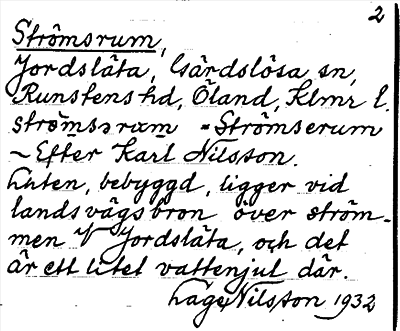 2
Strömsrum,
Jordslåta, Gärdslösa sn,
Runstens hd, Öland, Klmr l.
strömsərum = Strömserum
~ Efter Karl Nilsson.
Liten, bebyggd, ligger vid
landsvägsbron över ström-
men V Jordslåta, och det
är ett litet vattenjul där.
Lage Nilsson 1932